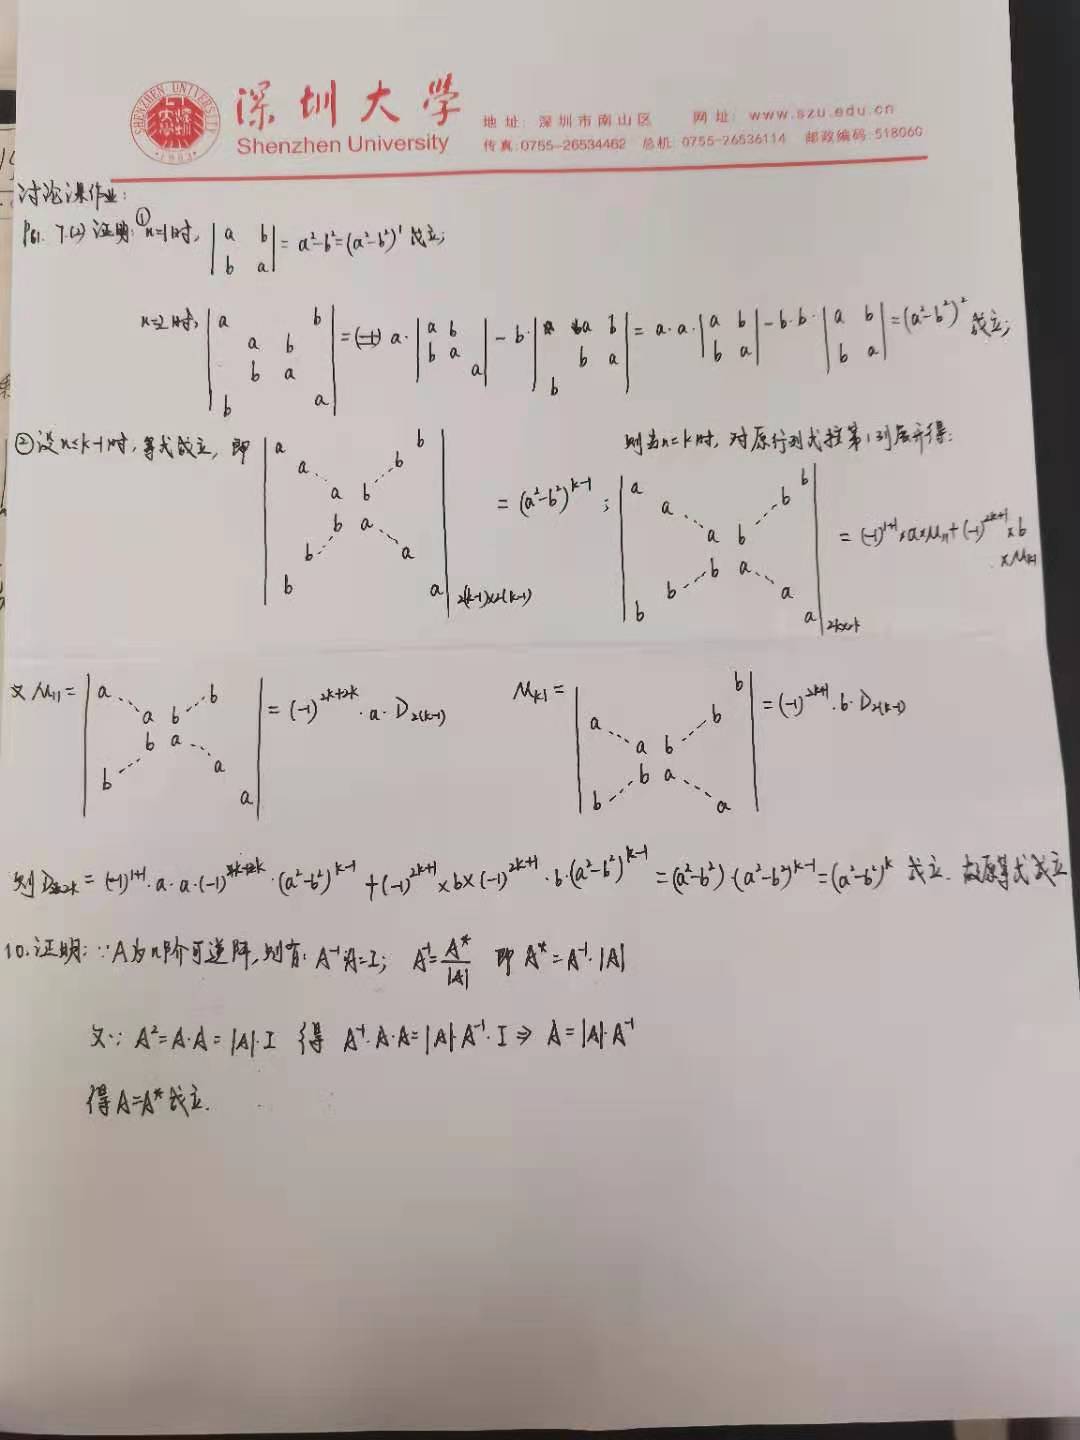 深圳大学
Shenzhen University
地址:深圳市南山区 网址:www.szu.edu.cn
传真:0755-26534462 总机:0755-26536114 邮政编码:518060
SHENZHEN UNIVERSITY
1983
讨论课作业:
P61. 7.(2) 证明: ① n=1时, | a b ; b a | = a²-b² = (a²-b²)¹ 成立;
n=2时, | a b ; a b ; b a ; b a | = a· | a b ; b a ; a | - b· | a b ; b a ; b | = a·a· | a b ; b a | - b·b· | a b ; b a | = (a²-b²)² 成立;
② 设n≤k-1时, 等式成立, 即 | a b ; a b ; a b ; b a ; b a ; b a | 2(k-1)×2(k-1) = (a²-b²)^(k-1) ; 则当n=k时, 对原行列式按第1列展开得:
| a b ; a b ; a b ; b a ; b a ; b a | 2k×2k = (-1)^(1+1)×a×M11+(-1)^(2k+1)×b
×Mk1
又 M11 = | a b ; a b ; b a ; b a ; a | = (-1)^(2k+2k)·a·D2(k-1) Mk1 = | b ; a b ; a b ; b a ; b a | = (-1)^(2k+1)·b·D2(k-1)
则 D2k = (-1)^(1+1)·a·a·(-1)^(2k+2k)·(a²-b²)^(k-1) + (-1)^(2k+1)×b×(-1)^(2k+1)·b·(a²-b²)^(k-1) = (a²-b²)·(a²-b²)^(k-1) = (a²-b²)^k 成立. 故原等式成立
10. 证明: ∵A为n阶可逆阵, 则有: A⁻¹·A=I; A⁻¹=A*/|A| 即 A*=A⁻¹·|A|
又∵ A²=A·A=|A|·I 得 A⁻¹·A·A=|A|·A⁻¹·I ⇒ A=|A|·A⁻¹
得 A=A* 成立.